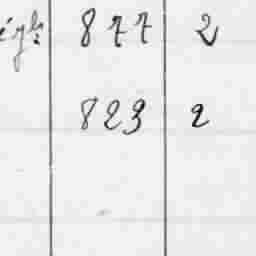 877 2
823 2